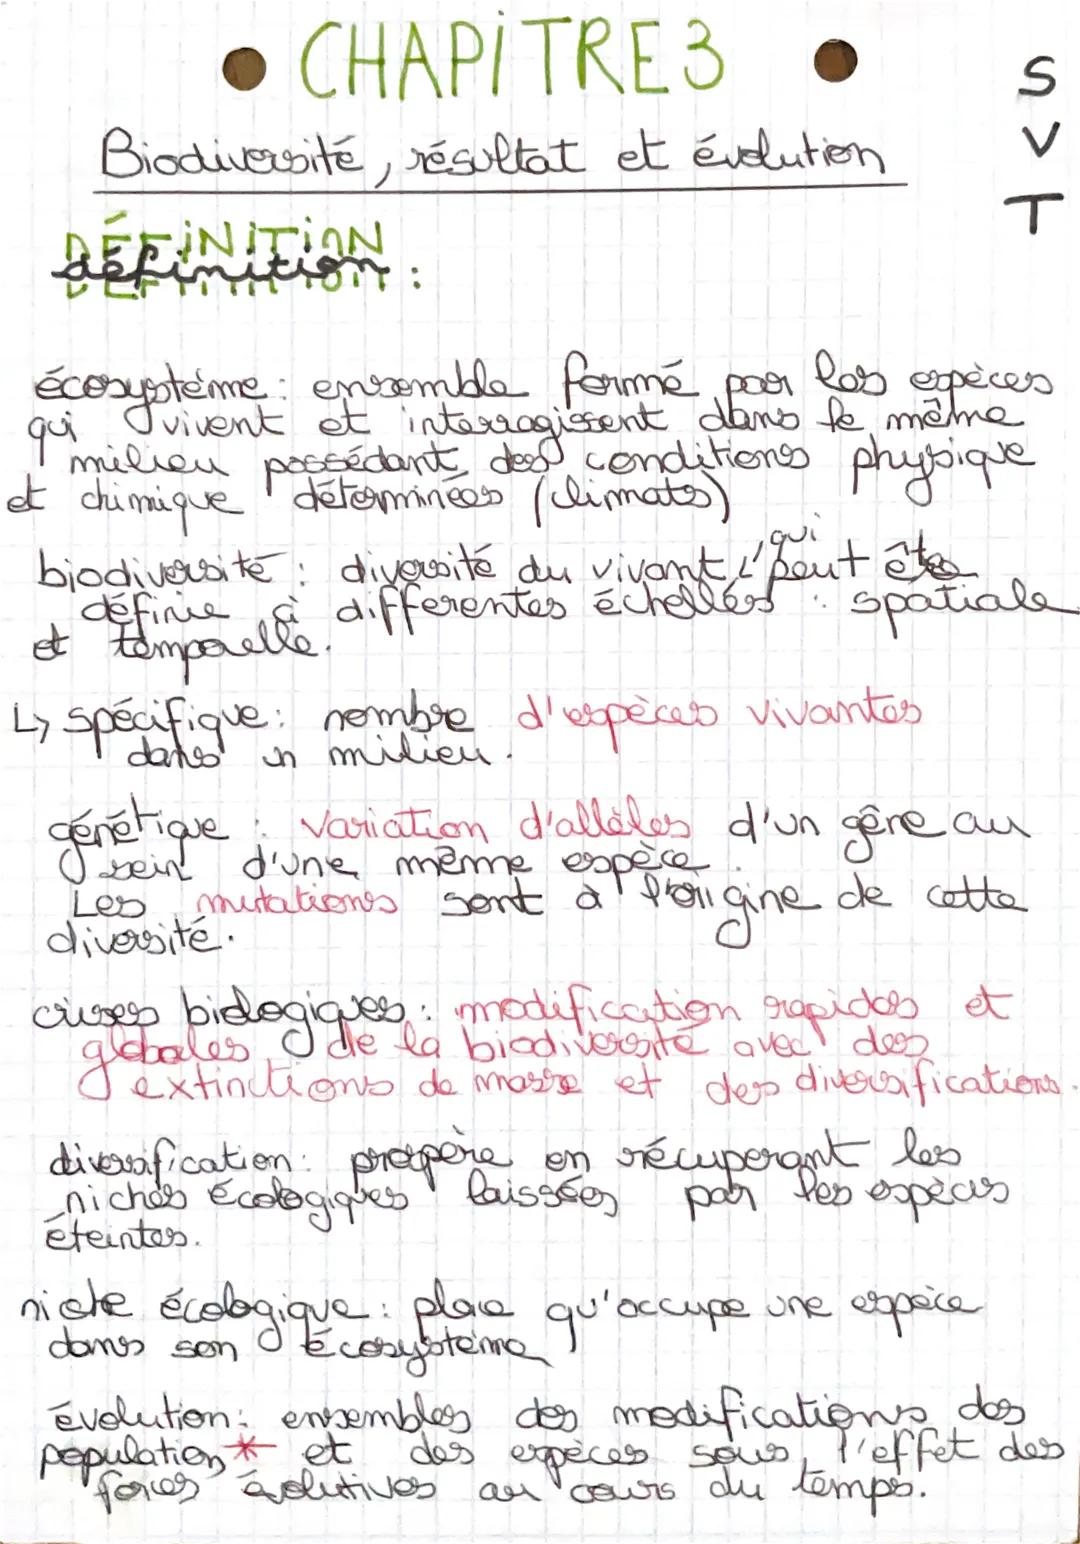 CHAPiTRE 3
SVT
Biodiversité, résultat et évolution
DÉFiNiTiON
définition :
écosystème : ensemble formé par les espèces
qui vivent et interragissent dans le même
milieu possédant des conditions physique
et chimique déterminées (climats)
biodiversité : diversité du vivant, qui peut être
définie à differentes échelles : spatiale
et temporelle.
↳ spécifique : nombre d'espèces vivantes
dans un milieu.
génétique : variation d'allèles d'un gêne au
sein d'une même espèce.
Les mutations sont à l'origine de cette
diversité.
crises biologiques : modification rapides et
globales de la biodiversité avec des
extinctions de masse et des diversifications.
diversification : prospère en récuperant les
niches écologiques laissées par les espèces
éteintes.
niche écologique : place qu'occupe une espèce
dans son écosystème
évolution : ensembles des modifications des
population * et des espèces sous l'effet des
forces évolutives au cours du temps.